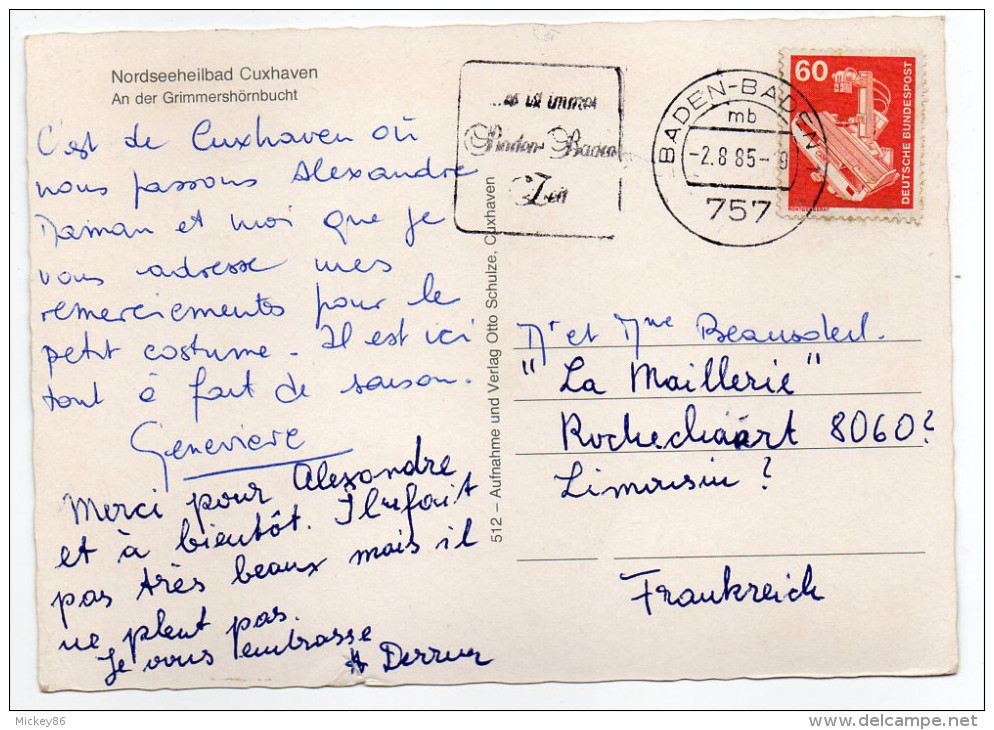 Nordseeheilbad Cuxhaven
An der Grimmershörnbucht
C'est de Cuxhaven où
nous passons Alexandre
Maman et moi que je
vous adresse mes
remerciements pour le
petit costume. Il est ici
tout à fait de saison.
Geneviève
Merci pour Alexandre
et à bientôt. Il ne fait
pas très beaux mais il
ne pleut pas.
Je vous embrasse
512 – Aufnahme und Verlag Otto Schulze, Cuxhaven
...es ist immer
Baden-Baden
Zeit
BADEN-BADEN 1
mb
-2.8.85-9
757
60
DEUTSCHE BUNDESPOST
Mr et Mme Beausoleil.
"La Maillerie"
Rochechouart 8060?
Limousin?
Frankreich
Mickey86
www.delcampe.net